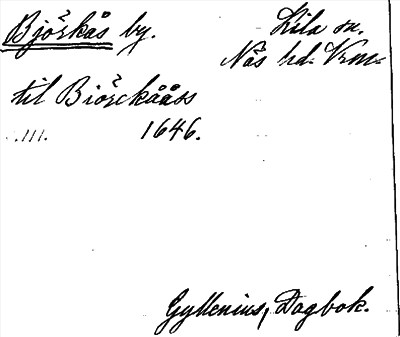 Björkås by. Kila sn.
Näs hd. Vrm.
til Biörckååss
.111. 1646.
Gyllenius, Dagbok.